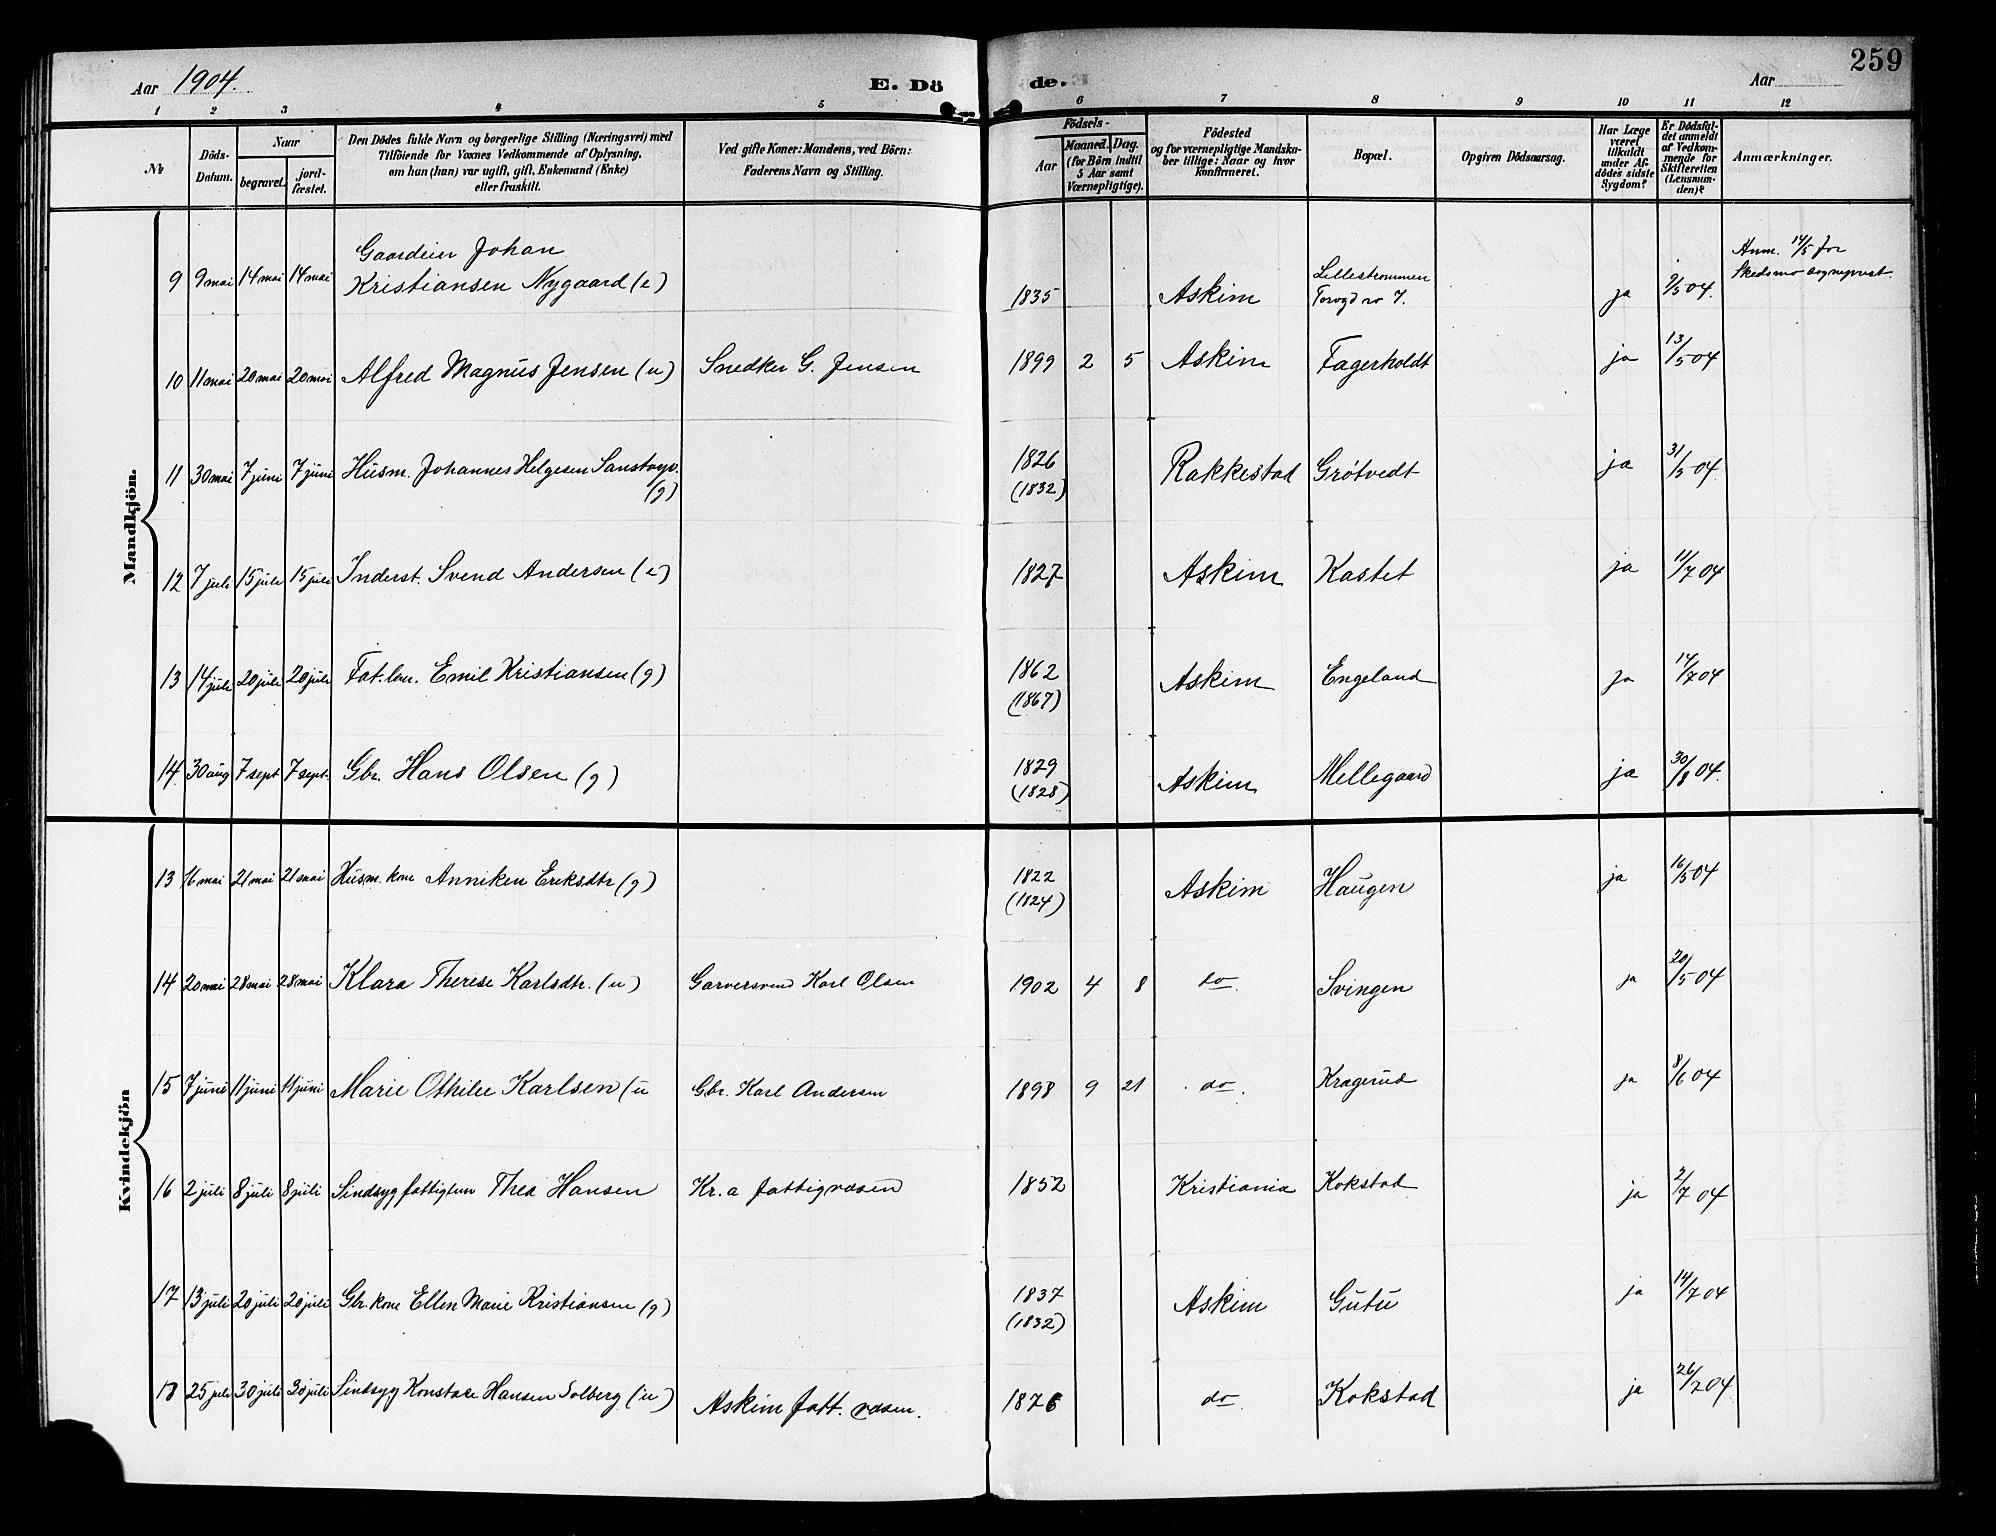 259
Aar 1904. E. Dö de. Aar
1 2 3 4 5 6 7 8 9 10 11 12
No
Döds-Datum.
Naar
begravet.
jord-fæstet.
Den Dödes fulde Navn og borgerlige Stilling (Næringsvei) med
Tilföiende for Voxnes Vedkommende af Oplysning,
om han (hun) var ugift, gift, Enkemand (Enke)
eller fraskilt.
Ved gifte Koner: Mandens, ved Börn:
Faderens Navn og Stilling.
Födsels-
Aar
Maaned. Dag.
(for Börn indtil
5 Aar samt
Værnepligtige).
Födested
og for værnepligtige Mandska-
ber tillige: Naar og hvor
konfirmeret.
Bopæl.
Opgiven Dödsaarsag.
Har Læge
været
tilkaldt
under Af-
dödes sidste
Sygdom?
Er Dödsfal-
det anmeldt
af Vedkom-
mende for
Skifteretten
(Lensman-
den)?
Anmærkninger.
Mandkjön.
Gaardeier Johan
9 9 mai 14 mai 14 mai Kristiansen Nygaard (e) 1835 Askim Lillestrømmen Torvgd no 7. ja 9/5 04. Anm. 14/5 for Skedsmo sogneprest.
10 11 mai 20 mai 20 mai Alfred Magnus Jensen (u) Snedker G. Jensen 1899 2 5 Askim Fagerholdt ja 13/5 04
11 30 mai 7 juni 7 juni Husm. Johannes Helgesen (g) 1826 (1832) Rakkestad Grötvedt ja 31/5 04
12 7 juli 15 juli 15 juli Inderst. Svend Andersen (e) 1827 Askim Kastet ja 11/7 04
13 14 juli 20 juli 20 juli Fat.lem. Emil Kristiansen (g) 1862 (1867) Askim Engeland ja 14/7 04
14 30 aug 7 sept 7 sept. Gbr. Hans Olsen (g) 1829 (1828) Askim Mellegaard ja 30/8 04.
Kvindekjön
13 16 mai 21 mai 21 mai Husm. kone Anniken Eriksdtr (g) 1822 (1824) Askim Haugen ja 16/5 04
14 20 mai 28 mai 28 mai Klara Therese Karlsdtr. (u) Garversvend Karl Olsen 1902 4 8 do. Svingen ja 20/5 04
15 7 juni 11 juni 11 juni Marie Othilie Karlsen (u Gbr. Karl Andersen 1898 9 21 do. Kragerud ja 8/6 04
16 2 juli 8 juli 8 juli Sindsyg fattiglem Thea Hansen Kr.a fattigvæsen 1852 Kristiania Kokstad ja 2/7 04
17 13 juli 20 juli 20 juli Gbr. kone Ellen Marie Kristiansen (g) 1837 (1832) Askim Gutu ja 14/7 04
18 25 juli 30 juli 30 juli Sindsyg Hansen Solberg (u) Askim fatt. væsen. 1876 do. Kokstad ja 26/7 04